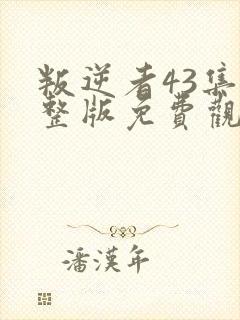 叛逆者43集
整版免費觀
潘漢年